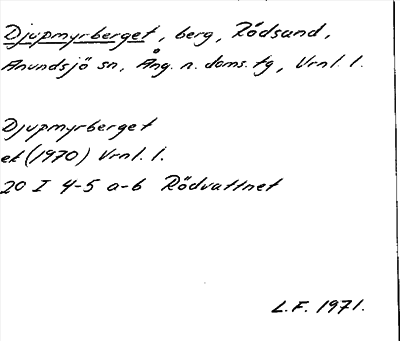 Djupmyrberget, berg, Rödsund,
Anundsjö sn, Ång. n. doms. tg, Vrnl. l.
Djupmyrberget
ek (1970) Vrnl. l.
20 I 4-5 a-b Rödvattnet
L.F. 1971.